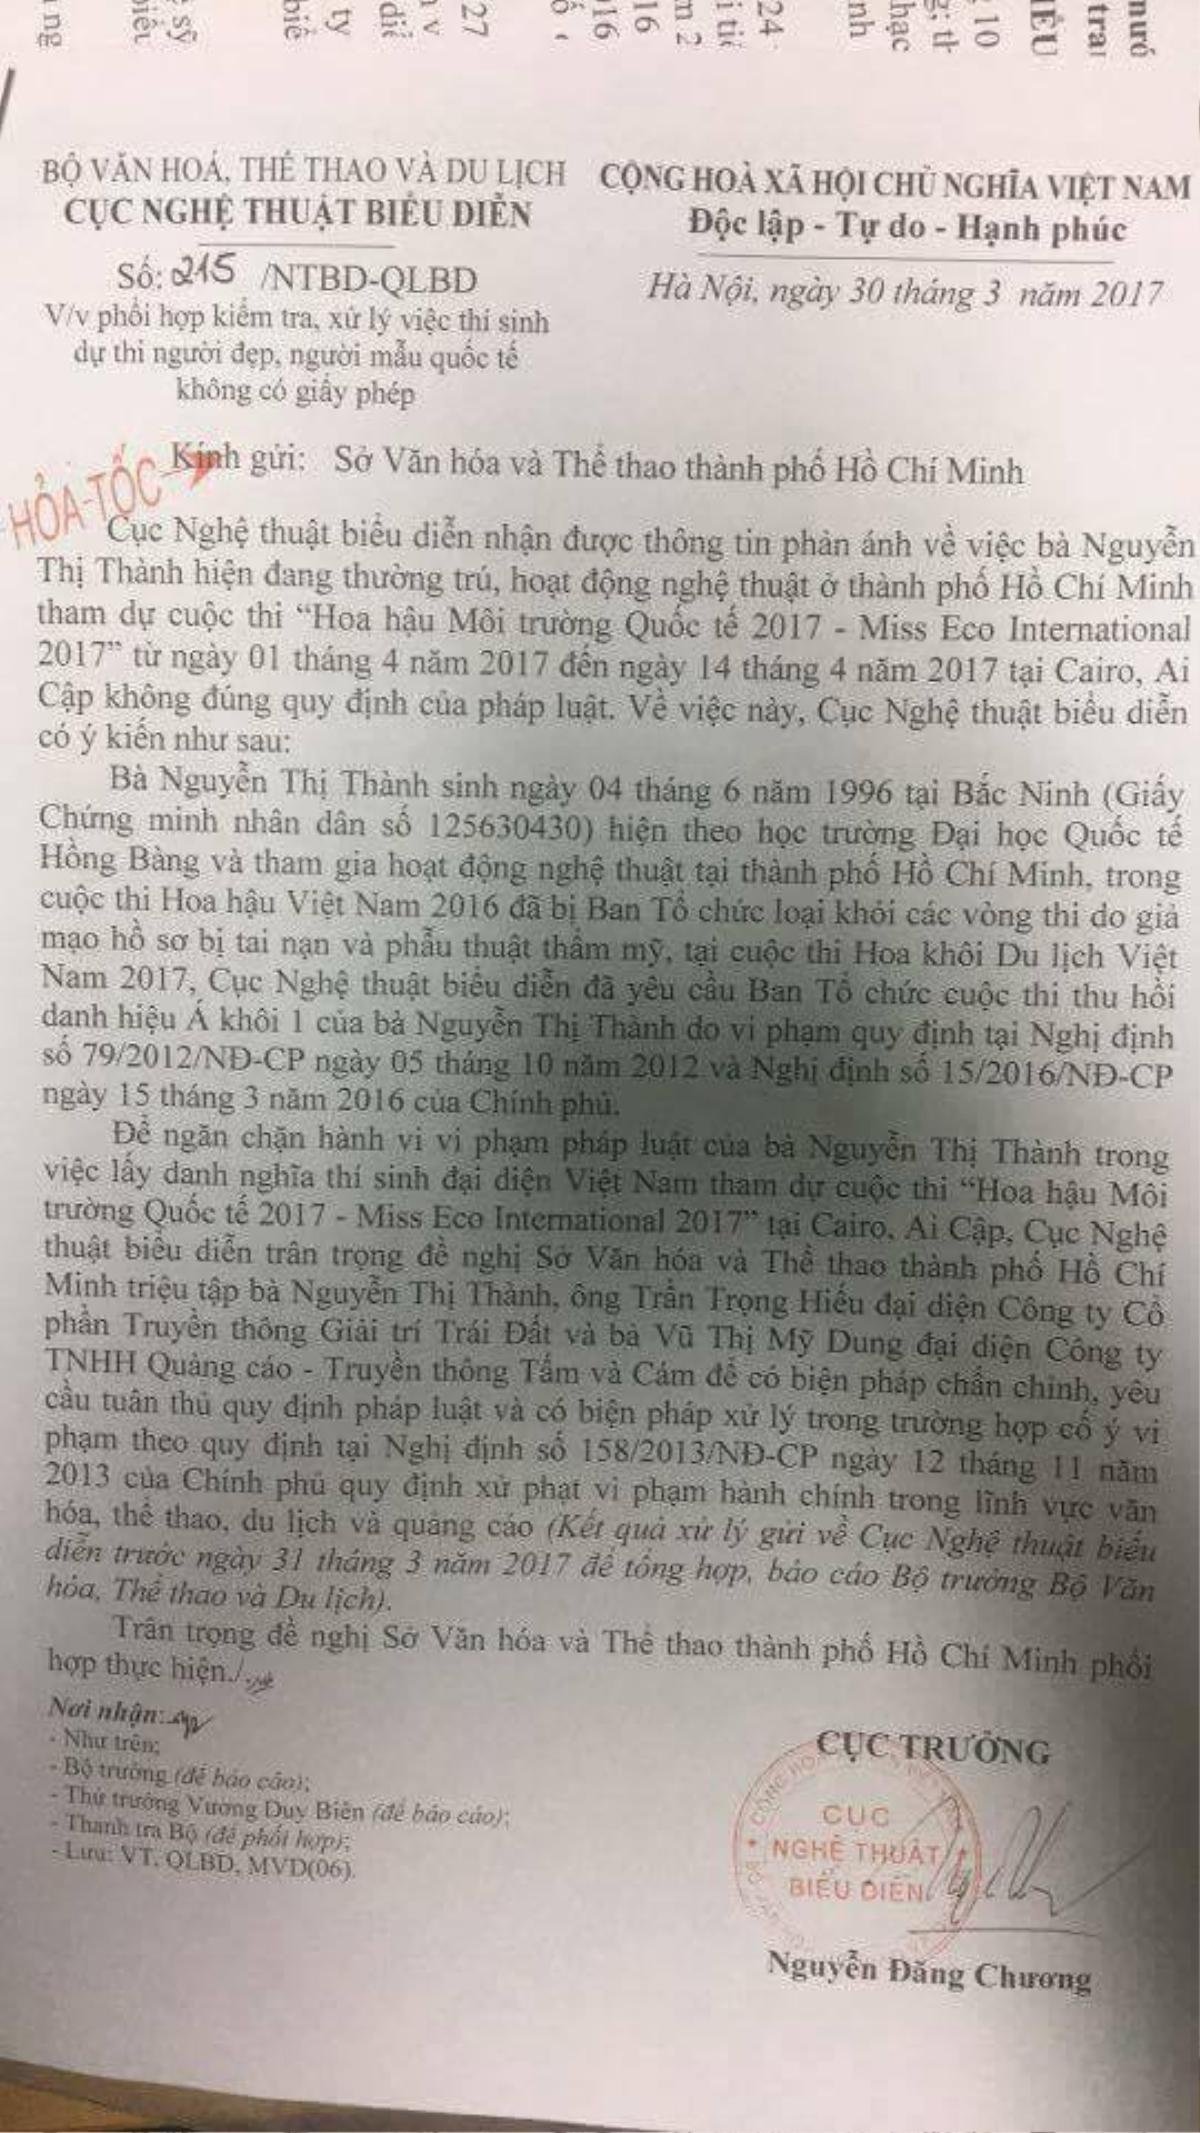 BỘ VĂN HOÁ, THỂ THAO VÀ DU LỊCH
CỤC NGHỆ THUẬT BIỂU DIỄN
Số: 215 /NTBD-QLBD
V/v phối hợp kiểm tra, xử lý việc thí sinh
dự thi người đẹp, người mẫu quốc tế
không có giấy phép
CỘNG HOÀ XÃ HỘI CHỦ NGHĨA VIỆT NAM
Độc lập - Tự do - Hạnh phúc
Hà Nội, ngày 30 tháng 3 năm 2017
HỎA-TỐC
Kính gửi: Sở Văn hóa và Thể thao thành phố Hồ Chí Minh
Cục Nghệ thuật biểu diễn nhận được thông tin phản ánh về việc bà Nguyễn
Thị Thành hiện đang thường trú, hoạt động nghệ thuật ở thành phố Hồ Chí Minh
tham dự cuộc thi “Hoa hậu Môi trường Quốc tế 2017 - Miss Eco International
2017” từ ngày 01 tháng 4 năm 2017 đến ngày 14 tháng 4 năm 2017 tại Cairo, Ai
Cập không đúng quy định của pháp luật. Về việc này, Cục Nghệ thuật biểu diễn
có ý kiến như sau:
Bà Nguyễn Thị Thành sinh ngày 04 tháng 6 năm 1996 tại Bắc Ninh (Giấy
Chứng minh nhân dân số 125630430) hiện theo học trường Đại học Quốc tế
Hồng Bàng và tham gia hoạt động nghệ thuật tại thành phố Hồ Chí Minh, trong
cuộc thi Hoa hậu Việt Nam 2016 đã bị Ban Tổ chức loại khỏi các vòng thi do giả
mạo hồ sơ bị tai nạn và phẫu thuật thẩm mỹ, tại cuộc thi Hoa khôi Du lịch Việt
Nam 2017, Cục Nghệ thuật biểu diễn đã yêu cầu Ban Tổ chức cuộc thi thu hồi
danh hiệu Á khôi 1 của bà Nguyễn Thị Thành do vi phạm quy định tại Nghị định
số 79/2012/NĐ-CP ngày 05 tháng 10 năm 2012 và Nghị định số 15/2016/NĐ-CP
ngày 15 tháng 3 năm 2016 của Chính phủ.
Để ngăn chặn hành vi vi phạm pháp luật của bà Nguyễn Thị Thành trong
việc lấy danh nghĩa thí sinh đại diện Việt Nam tham dự cuộc thi “Hoa hậu Môi
trường Quốc tế 2017 - Miss Eco International 2017” tại Cairo, Ai Cập, Cục Nghệ
thuật biểu diễn trân trọng đề nghị Sở Văn hóa và Thể thao thành phố Hồ Chí
Minh triệu tập bà Nguyễn Thị Thành, ông Trần Trọng Hiếu đại diện Công ty Cổ
phần Truyền thông Giải trí Trái Đất và bà Vũ Thị Mỹ Dung đại diện Công ty
TNHH Quảng cáo - Truyền thông Tấm và Cám để có biện pháp chấn chỉnh, yêu
cầu tuân thủ quy định pháp luật và có biện pháp xử lý trong trường hợp cố ý vi
phạm theo quy định tại Nghị định số 158/2013/NĐ-CP ngày 12 tháng 11 năm
2013 của Chính phủ quy định xử phạt vi phạm hành chính trong lĩnh vực văn
hóa, thể thao, du lịch và quảng cáo (Kết quả xử lý gửi về Cục Nghệ thuật biểu
diễn trước ngày 31 tháng 3 năm 2017 để tổng hợp, báo cáo Bộ trưởng Bộ Văn
hóa, Thể thao và Du lịch).
Trân trọng đề nghị Sở Văn hóa và Thể thao thành phố Hồ Chí Minh phối
hợp thực hiện./.
Nơi nhận:
- Như trên;
- Bộ trưởng (để báo cáo);
- Thứ trưởng Vương Duy Biên (để báo cáo);
- Thanh tra Bộ (để phối hợp);
- Lưu: VT, QLBD, MVD(06).
CỤC TRƯỞNG
CỤC
NGHỆ THUẬT
BIỂU DIỄN
Nguyễn Đăng Chương